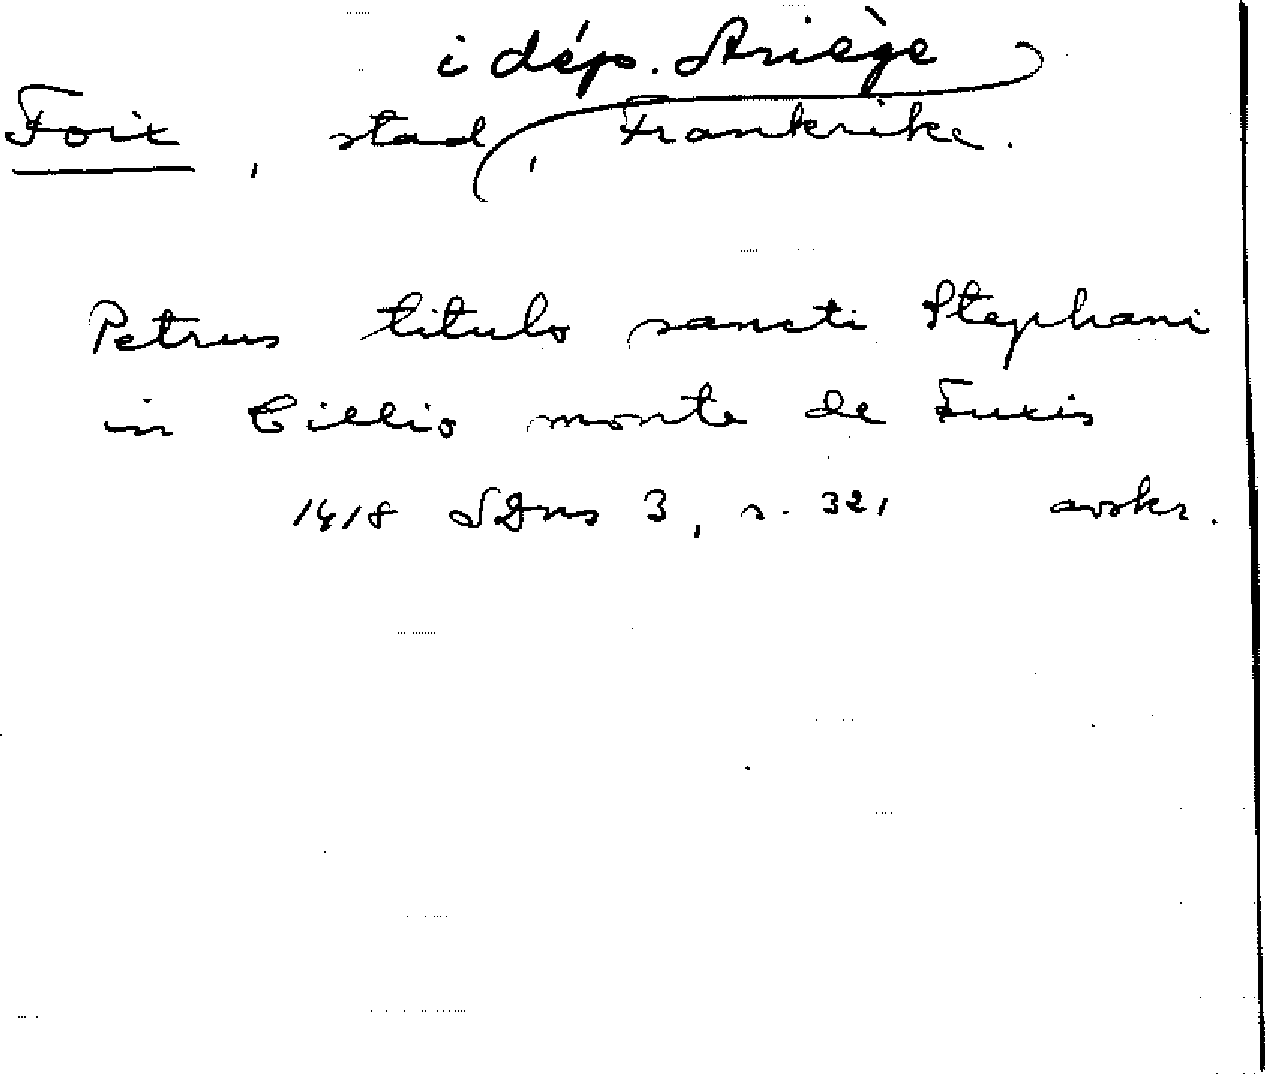 i dép. Ariège
Foix, stad, Frankrike.
Petrus titulo sancti Stephani
in Cillio monte de Fuxis
1418 SDns 3, s. 321 avskr.